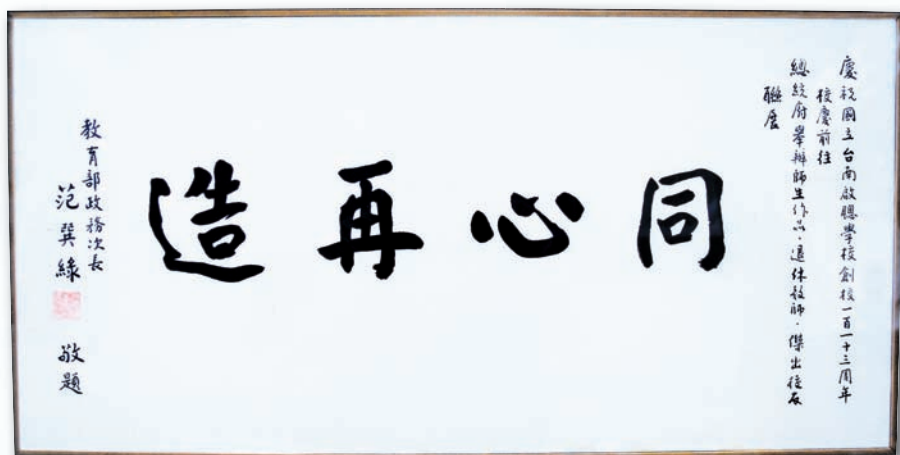 慶祝國立台南啟聰學校創校一百一十三周年
校慶前往
總統府舉辦師生作品、退休教師、傑出校友
聯展
同心再造
教育部政務次長
范巽綠 敬題